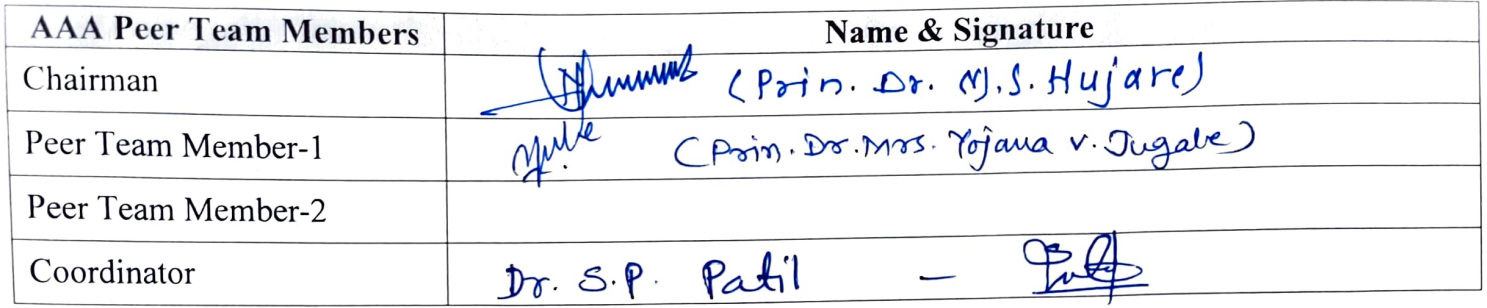 AAA Peer Team Members Name & Signature
Chairman (Prin. Dr. N.S. Hujare)
Peer Team Member-1 (Prin. Dr. Mrs. Yojana V. Jugale)
Peer Team Member-2
Coordinator Dr. S.P. Patil -